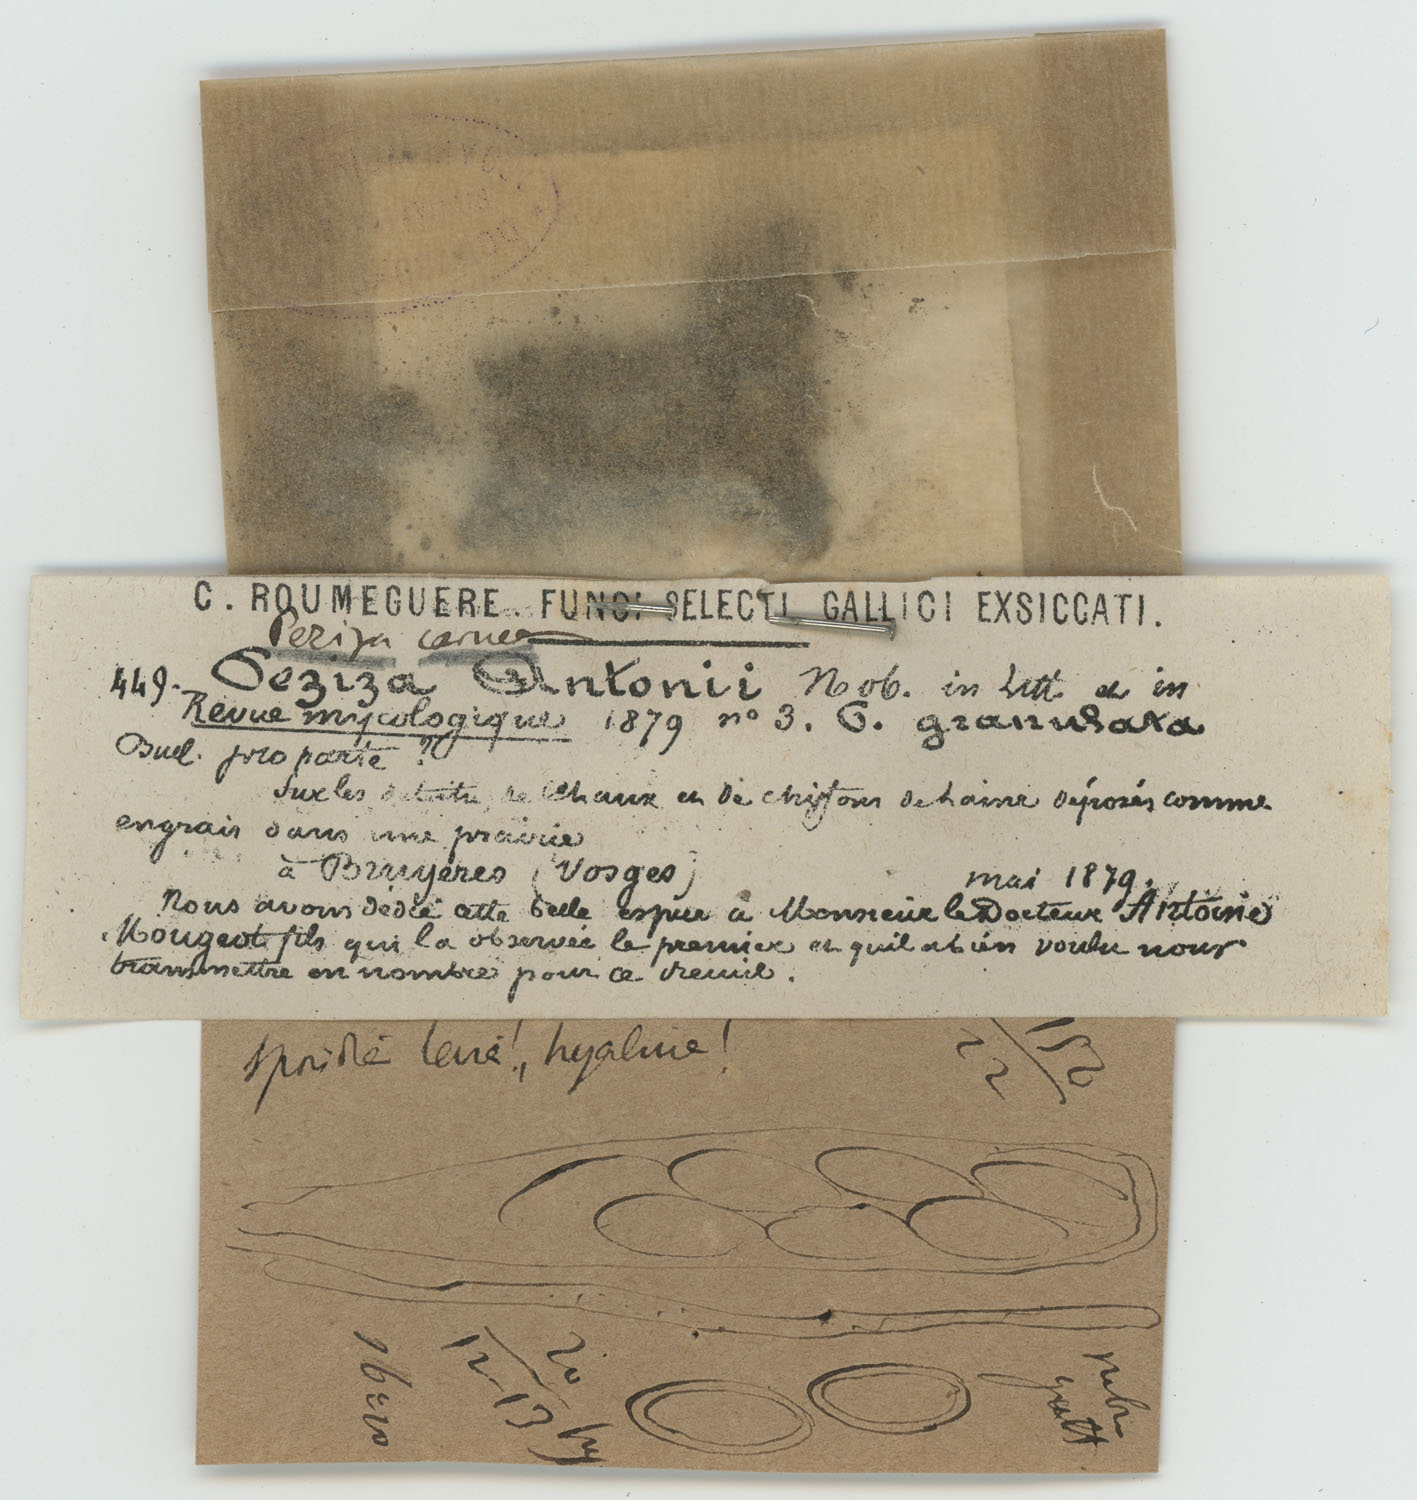 C. ROUMEGUERE. FUNGI SELECTI GALLICI EXSICCATI.
Peziza carnea
449. Peziza Antonii Nob. in litt. et in
Revue mycologique 1879 no 3. P. granulata
Bul. pro parte ?
Sur les de Chaux et de chiffons de laine déposés comme
engrais dans une prairie
à Bruyères (Vosges) mai 1879.
Nous avons dédié cette belle espèce à Monsieur le Docteur Antoine
Mougeot fils qui l a observée le premier et qui l a bien voulu nous
transmettre en nombre pour ce
hyaline!
20
12-13 hy